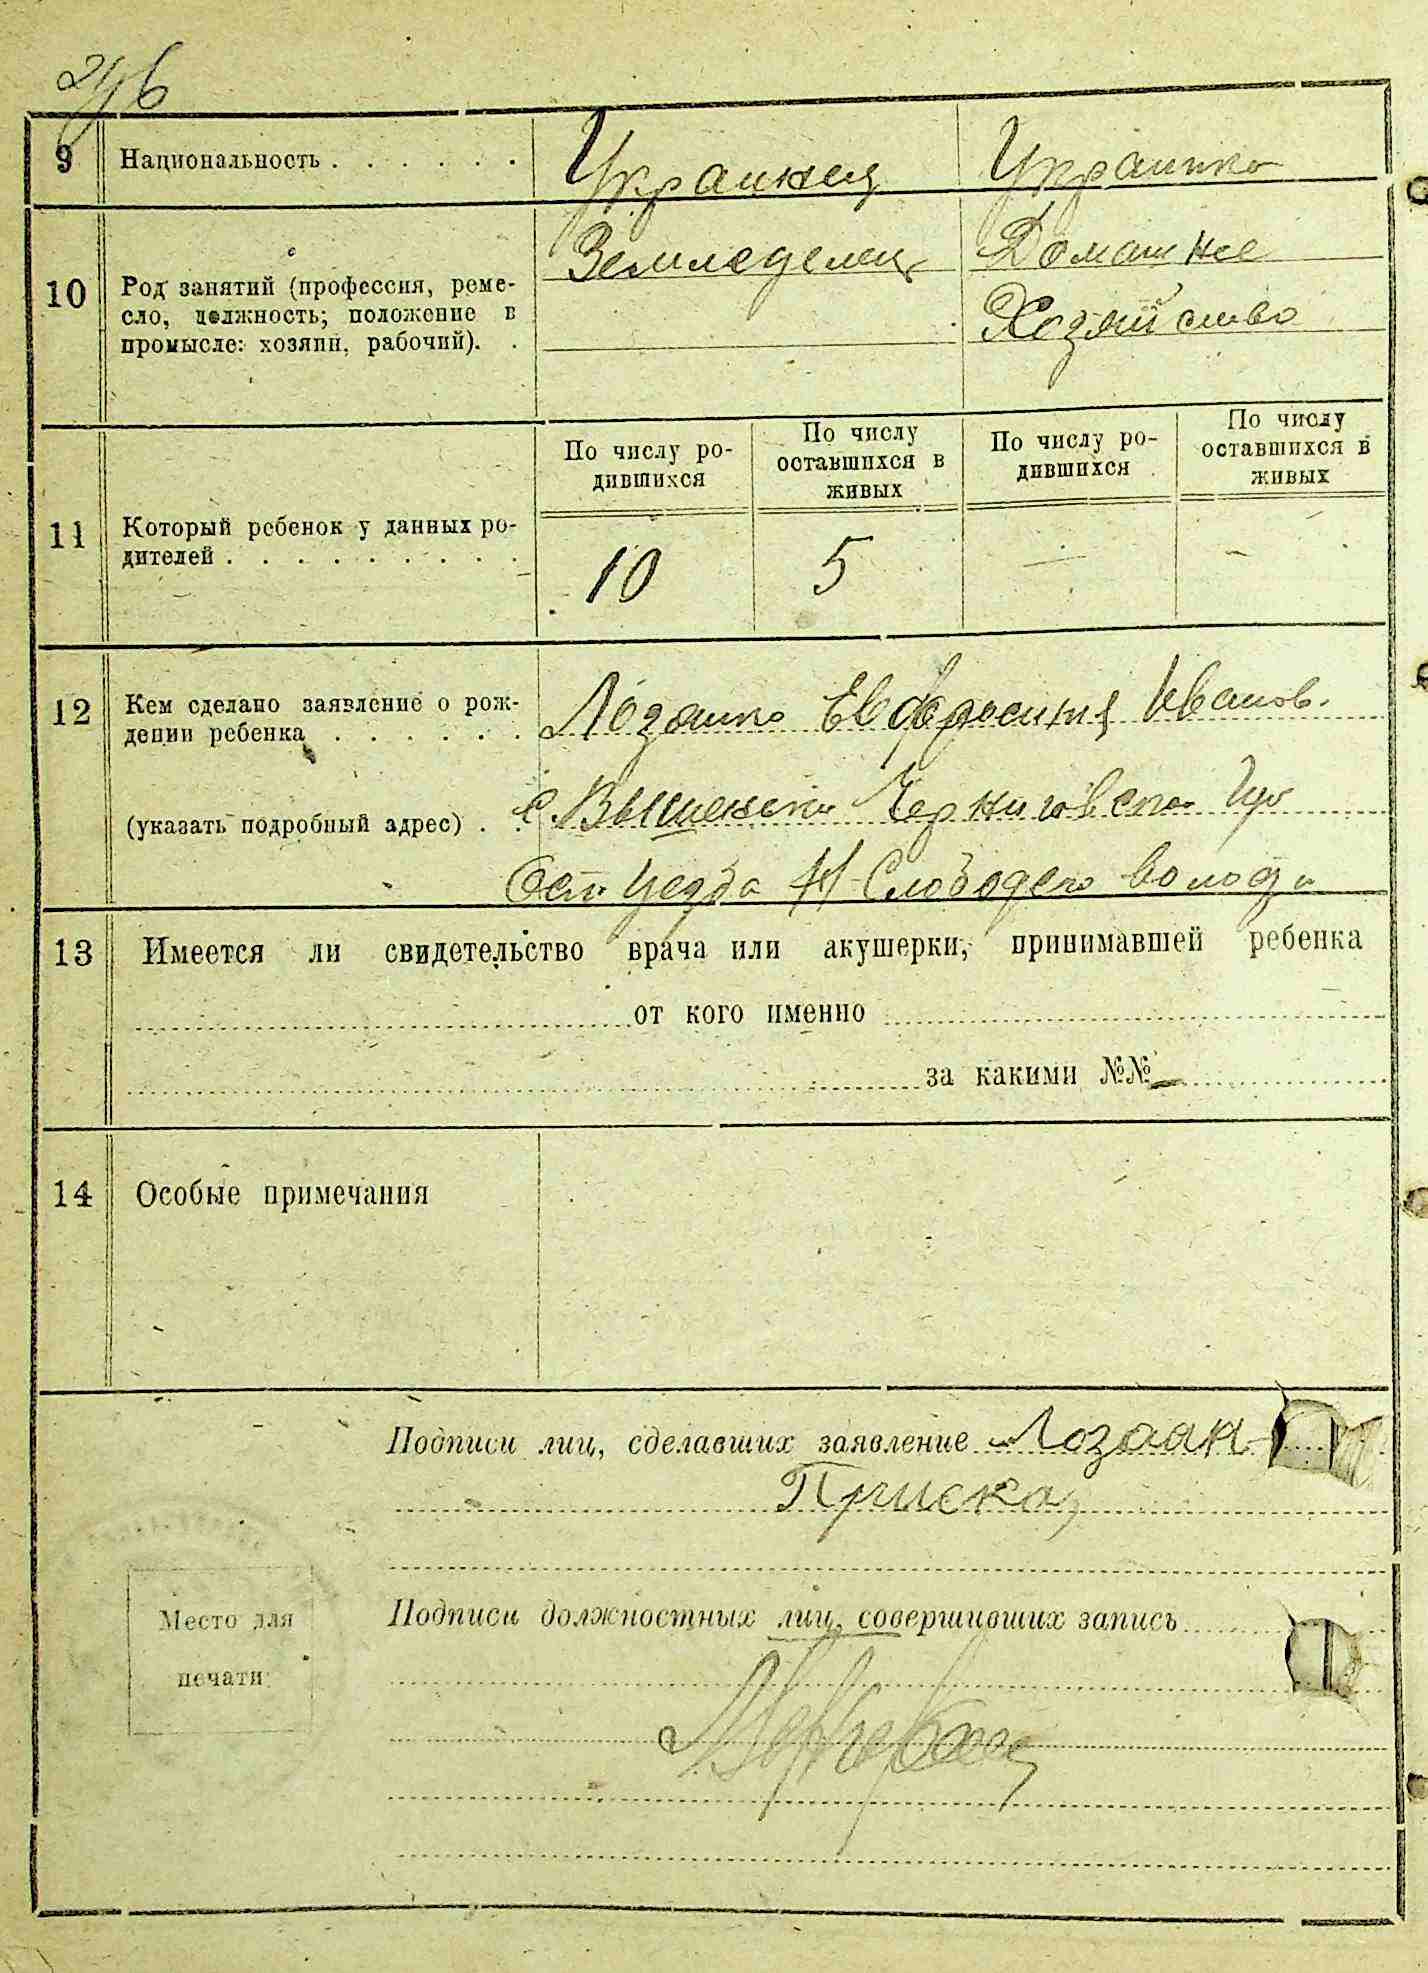 9 Национальность . . . . . . Украинец Украинка
10 Род занятий (профессия, реме-
сло, должность; положение в
промысле: хозяин, рабочий). .
Земледелец
Домашнее
Хозяйство
11 Который ребенок у данных ро-
дителей . . . . . . . . .
По числу ро-
дившихся
По числу
оставшихся в
живых
По числу ро-
дившихся
По числу
оставшихся в
живых
10 5 — -
12 Кем сделано заявление о рож-
дении ребенка . . . . . .
(указать подробный адрес) . .
Лозанко Иванов.
с. Вышенско Черниговско Гу
Ост. Уезда Н Слободско волост
13 Имеется ли свидетельство врача или акушерки, принимавшей ребенка
от кого именно
за какими №№ —
14 Особые примечания
Подписи лиц, сделавших заявление
Приска
Место для
печати
Подписи должностных лиц, совершивших запись